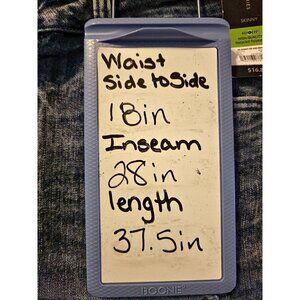 Waist
Side to Side
18in
Inseam
28 in
length
37.5in
BOONE
SKINNY